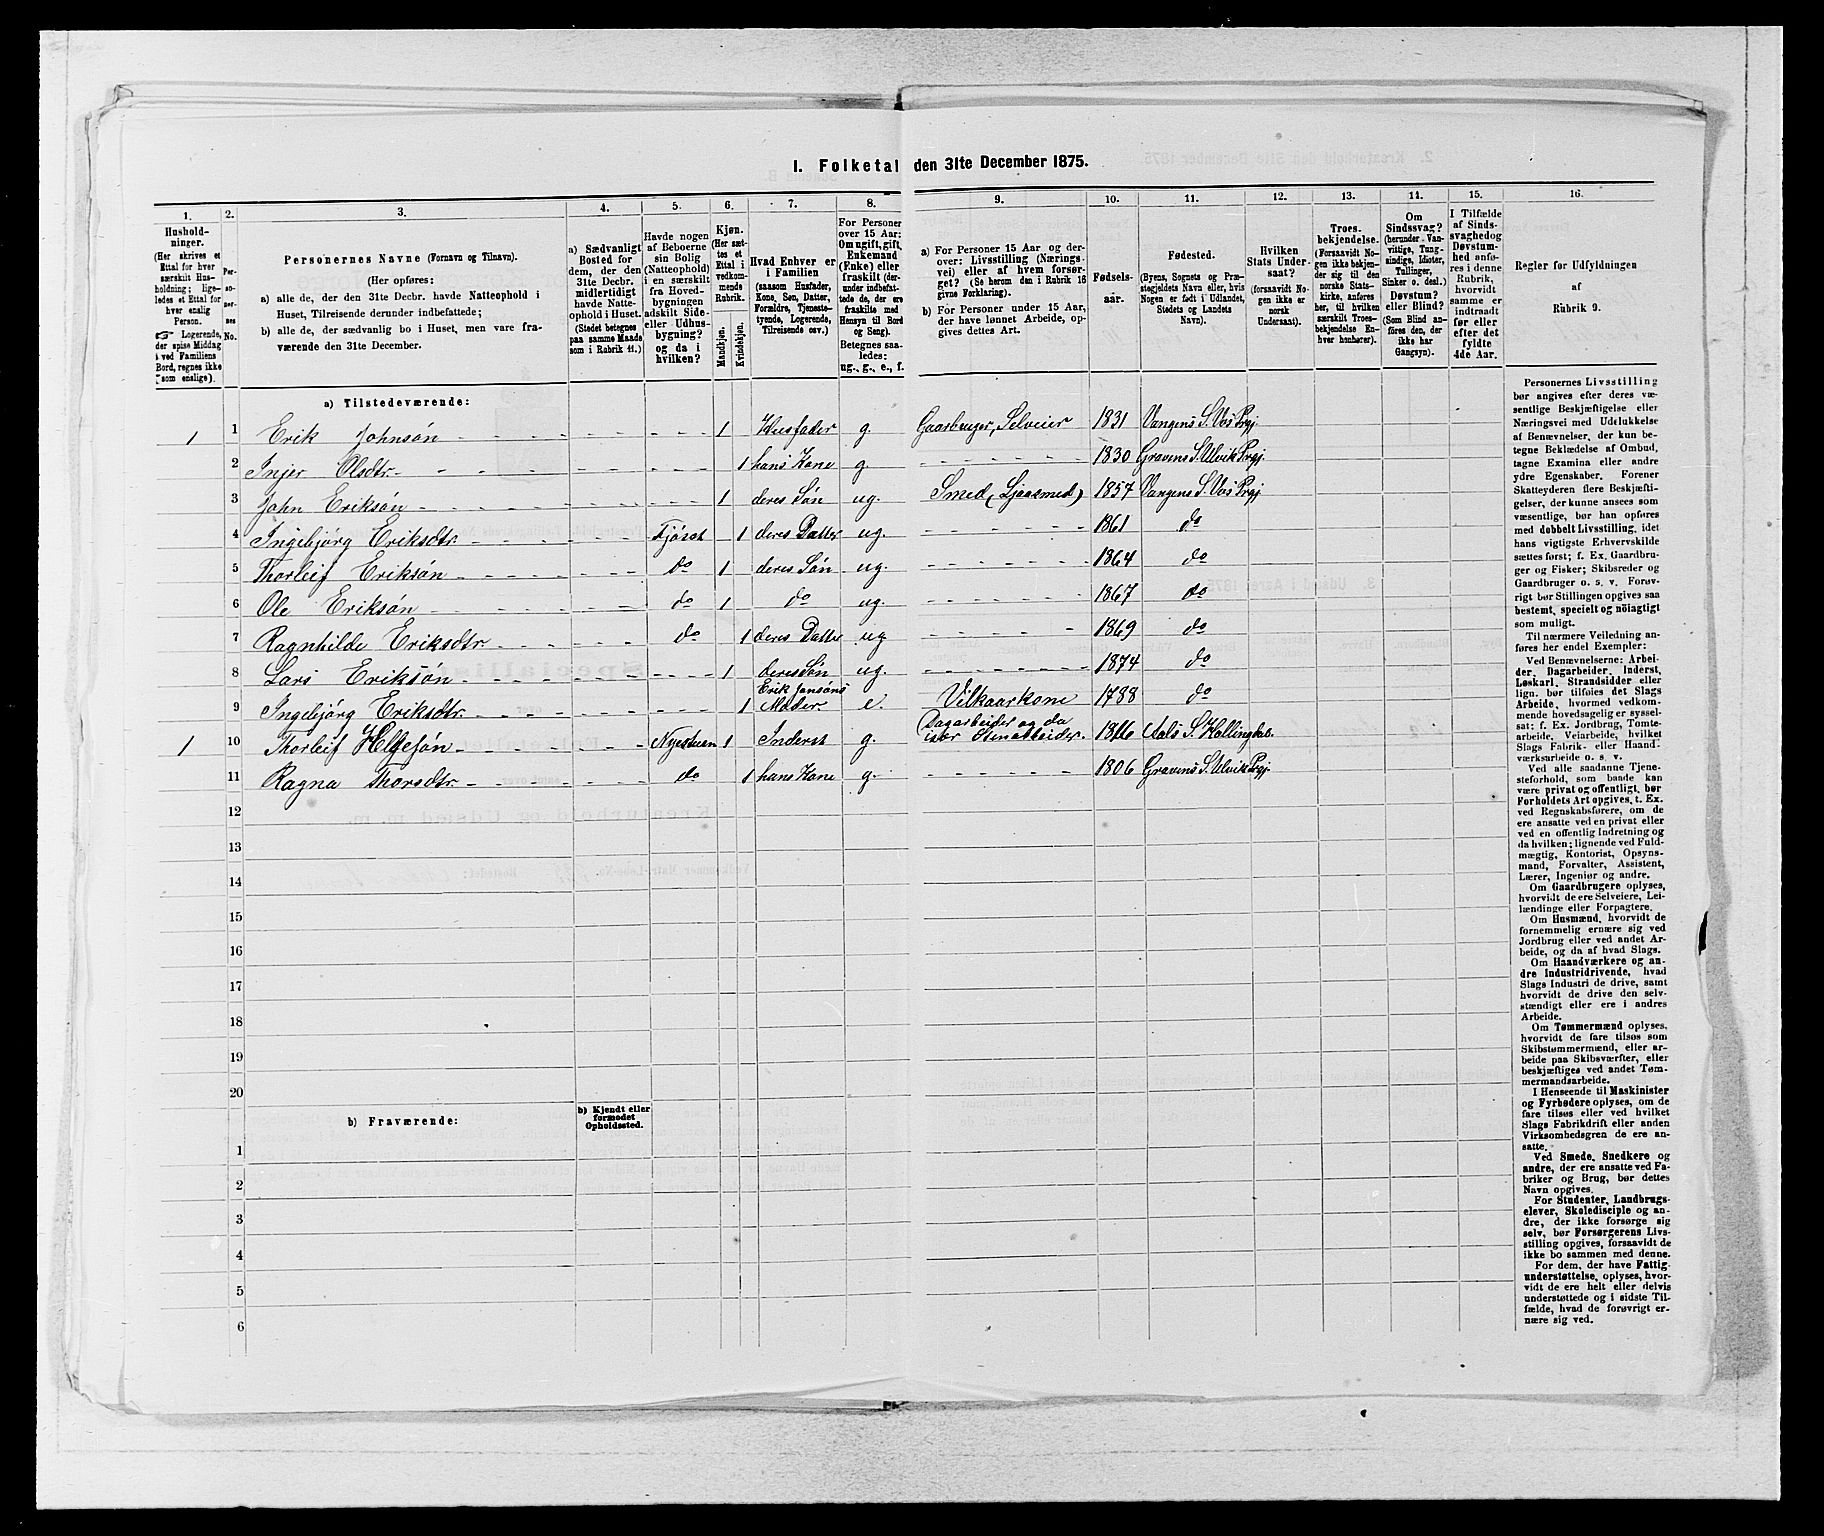 1. Folketal den 31te December 1875.
1. 2. 3. 4. 5. 6. 7. 8. 9. 10. 11. 12. 13. 14. 15. 16.
Hushold-
ninger.
(Her skrives et
Ettal for hver
særskilt Hus-
holdning; lige-
ledes et Ettal for
hver enslig
Person.
Logerende,
der spise Middag
ved Familiens
Bord, regnes ikke
som enslige).
Per-
so-
ner-
nes
No.
Personernes Navne (Fornavn og Tilnavn).
(Her opføres:
a) alle de, der den 31te Decbr. havde Natteophold i
Huset, Tilreisende derunder indbefattede;
b) alle de, der sædvanlig bo i Huset, men vare fra-
værende den 31te December.
a) Sædvanligt
Bosted for
dem, der den
31te Decbr.
midlertidigt
havde Natte-
ophold i Huset.
(Stedet betegnes
paa samme Maade
som i Rubrik 11.)
Havde nogen
af Beboerne
sin Bolig
(Natteophold)
i en særskilt
fra Hoved-
bygningen
adskilt Side-
eller Udhus-
bygning?
og da i
hvilken?
Kjøn.
(Her sæt-
tes et
Ettal i
vedkom-
mende
Rubrik.
Mandkjøn.
Kvindekjøn.
Hvad Enhver er
i Familien
(saasom Husfader,
Kone, Søn, Datter,
Forældre, Tjeneste-
tyende, Logerende,
Tilreisende osv.)
For Personer
over 15 Aar:
Om ugift, gift,
Enkemand
(Enke) eller
fraskilt (der-
under indbefat-
tede de, der ere
fraskilte med
Hensyn til Bord
og Seng).
Betegnes saa-
ledes:
ug., g., e., f.
a) For Personer 15 Aar og der-
over: Livsstilling (Nærings-
vei) eller af hvem forsør-
get? (Se herom den i Rubrik 16
givne Forklaring).
b) For Personer under 15 Aar,
der have lønnet Arbeide, op-
gives dettes Art.
Fødsels-
aar.
Fødested.
(Byens, Sognets og Præ-
stegjeldets Navn eller, hvis
Nogen er født i Udlandet,
Stedets og Landets
Navn).
Hvilken
Stats Under-
saat?
(forsaavidt No-
gen ikke er
norsk
Undersaat).
Troes-
bekjendelse.
(Forsaavidt No-
gen ikke bekjen-
der sig til den
norske Stats-
kirke, anføres
her, til hvilken
særskilt Troes-
bekjendelse En-
hver henhører).
Om
Sindssvag?
(herunder Van-
vittige, Tung-
sindige, Idioter,
Tullinger,
Sinker o. desl.)
Døvstum?
eller Blind?
(Som Blind an-
føres den, der
ikke har
Gangsyn).
I Tilfælde
af Sinds-
svaghed og
Døvstum-
hed anfø-
res i denne
Rubrik,
hvorvidt
samme er
indtraadt
før eller
efter det
fyldte
4de Aar.
Regler for Udfyldningen
af
Rubrik 9.
a) Tilstedeværende:
1 1 Erik Johnsøn 1 Husfader g. Gaarbruger, Selveier 1831 Vangens S. Vos Prgj.
2 Injer Olsdtr. 1 hans Kone g 1830 Gravens S. Ulvik Prgj.
3 John Eriksøn 1 deres Søn ug. Smed (Ljaasmed) 1857 Vangens S. Vos Prgj
4 Ingebjørg Eriksdtr. Fjøset 1 deres Datter ug. 1861 do
5 Thorleif Eriksøn do 1 deres Søn ug. 1864 do
6 Ole Eriksøn do 1 do ug. 1867 do
7 Ragnhilde Eriksdtr. do 1 deres Datter ug 1869 do
8 Lars Eriksøn 1 deres Søn ug. 1874 do
9 Ingebjørg Eriksdtr. 1 Erik Jonsøns
Moder. e. Vilkaarkone 1788 do
1 10 Thorleif Helgesøn Nyestuen 1 Inderst g. Dagarbeider og da
især Stenarbeider. 1816 Aals S. Hallingdal.
11 Ragna Thorsdtr. do 1 hans Kone g. 1806 Gravens S. Ulvik Prgj.
12
13
14
15
16
17
18
19
20
b) Fraværende:
b) Kjendt eller
formodet
Opholdssted.
1
2
3
4
5
6
Personernes Livsstilling
bør angives efter deres væ-
sentlige Beskjæftigelse eller
Næringsvei med Udelukkelse
af Benævnelser, der kun be-
tegne Beklædelse af Ombud,
tagne Examina eller andre
ydre Egenskaber. Forener
Skatteyderen flere Beskjæfti-
gelser, der kunne ansees som
væsentlige, bør han opføres
med dobbelt Livsstilling, idet
hans vigtigste Erhvervskilde
sættes først; f. Ex. Gaardbru-
ger og Fisker; Skibsreder og
Gaardbruger o. s. v. Forøv-
rigt bør Stillingen opgives saa
bestemt, specielt og nöiagtigt
som muligt.
Til nærmere Veiledning an-
føres her endel Exempler:
Ved Benævnelserne: Arbei-
der, Dagarbeider, Inderst,
Løskarl, Strandsidder eller
lign. bør tilføies det Slags
Arbeide, hvormed vedkom-
mende hovedsagelig er syssel-
sat; f. Ex. Jordbrug, Tomte-
arbeide, Veiarbeide, hvilket
Slags Fabrik- eller Haand-
værksarbeide o. s. v.
Ved alle saadanne Tjene-
steforhold, som baade kan
være privat og offentligt, bør
Forholdets Art opgives, t. Ex.
ved Regnskabsførere, om de
ere ansatte ved en privat eller
ved en offentlig Indretning og
da hvilken; lignende ved Fuld-
mægtig, Kontorist, Opsyns-
mand, Forvalter, Assistent,
Lærer, Ingeniør og andre.
Om Gaardbrugere oplyses,
hvorvidt de ere Selveiere, Lei-
lændinge eller Forpagtere.
Om Husmænd, hvorvidt de
fornemmelig ernære sig ved
Jordbrug eller ved andet Ar-
beide, og da af hvad Slags.
Om Haandværkere og an-
dre Industridrivende, hvad
Slags Industri de drive, samt
hvorvidt de drive den selv-
stændigt eller ere i andres
Arbeide.
Om Tømmermænd oplyses,
hvorvidt de fare tilsøs som
Skibstømmermænd, eller ar-
beide paa Skibsværfter, eller
beskjæftiges ved andet Tøm-
mermandsarbeide.
I Henseende til Maskinister
og Fyrbødere oplyses, om de
fare tilsøs eller ved hvilket
Slags Fabrikdrift eller anden
Virksomhedsgren de ere an-
satte.
Ved Smede, Snedkere og
andre, der ere ansatte ved Fa-
briker og Brug, bør dettes
Navn opgives.
For Studenter, Landbrugs-
elever, Skoledisciple og an-
dre, der ikke forsørge sig
selv, bør Forsørgerens Livs-
stilling opgives, forsaavidt de
ikke bo sammen med denne.
For dem, der have Fattig-
understøttelse, oplyses, hvor-
vidt de ere helt eller delvis
understøttede og i sidste Til-
fælde, hvad de forøvrigt er-
nære sig ved.